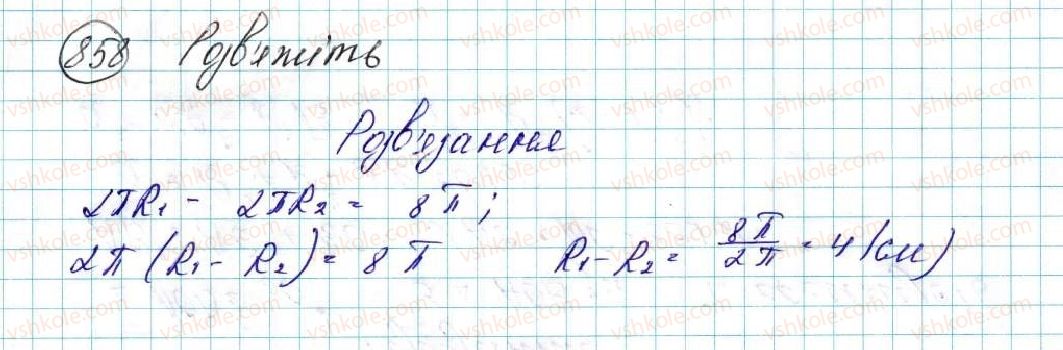 858 Розв'яжіть
Розв'язання
2πR₁ - 2πR₂ = 8π;
2π(R₁ - R₂) = 8π R₁ - R₂ = 8π/2π = 4 (см)